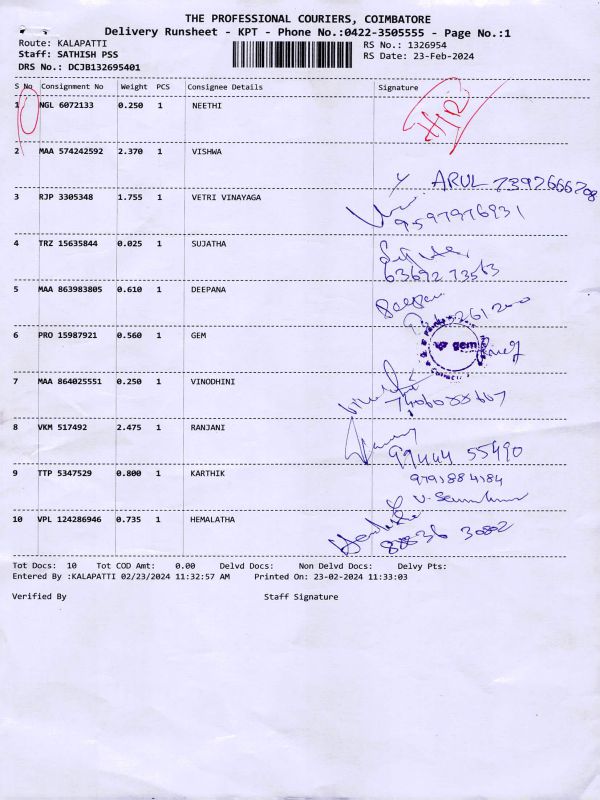 THE PROFESSIONAL COURIERS, COIMBATORE
Delivery Runsheet - KPT - Phone No.:0422-3505555 - Page No.:1
Route: KALAPATTI
RS No.: 1326954
Staff: SATHISH PSS
RS Date: 23-Feb-2024
DRS No.: DCJB132695401
S No Consignment No Weight PCS Consignee Details Signature
1 NGL 6072133 0.250 1 NEETHI
2 MAA 574242592 2.370 1 VISHWA
ARUL
3 RJP 3305348 1.755 1 VETRI VINAYAGA
9597976931
4 TRZ 15635844 0.025 1 SUJATHA
6369273563
5 MAA 863983805 0.610 1 DEEPANA
6 PRO 15987921 0.560 1 GEM
gem
7 MAA 864025551 0.250 1 VINODHINI
8 VKM 517492 2.475 1 RANJANI
99444 55490
9 TTP 5347529 0.800 1 KARTHIK
9791884184
10 VPL 124286946 0.735 1 HEMALATHA
Tot Docs: 10 Tot COD Amt: 0.00 Delvd Docs: Non Delvd Docs: Delvy Pts:
Entered By :KALAPATTI 02/23/2024 11:32:57 AM Printed On: 23-02-2024 11:33:03
Verified By Staff Signature